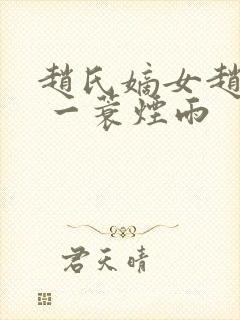 趙氏嫡女趙
一蓑煙雨
君天晴